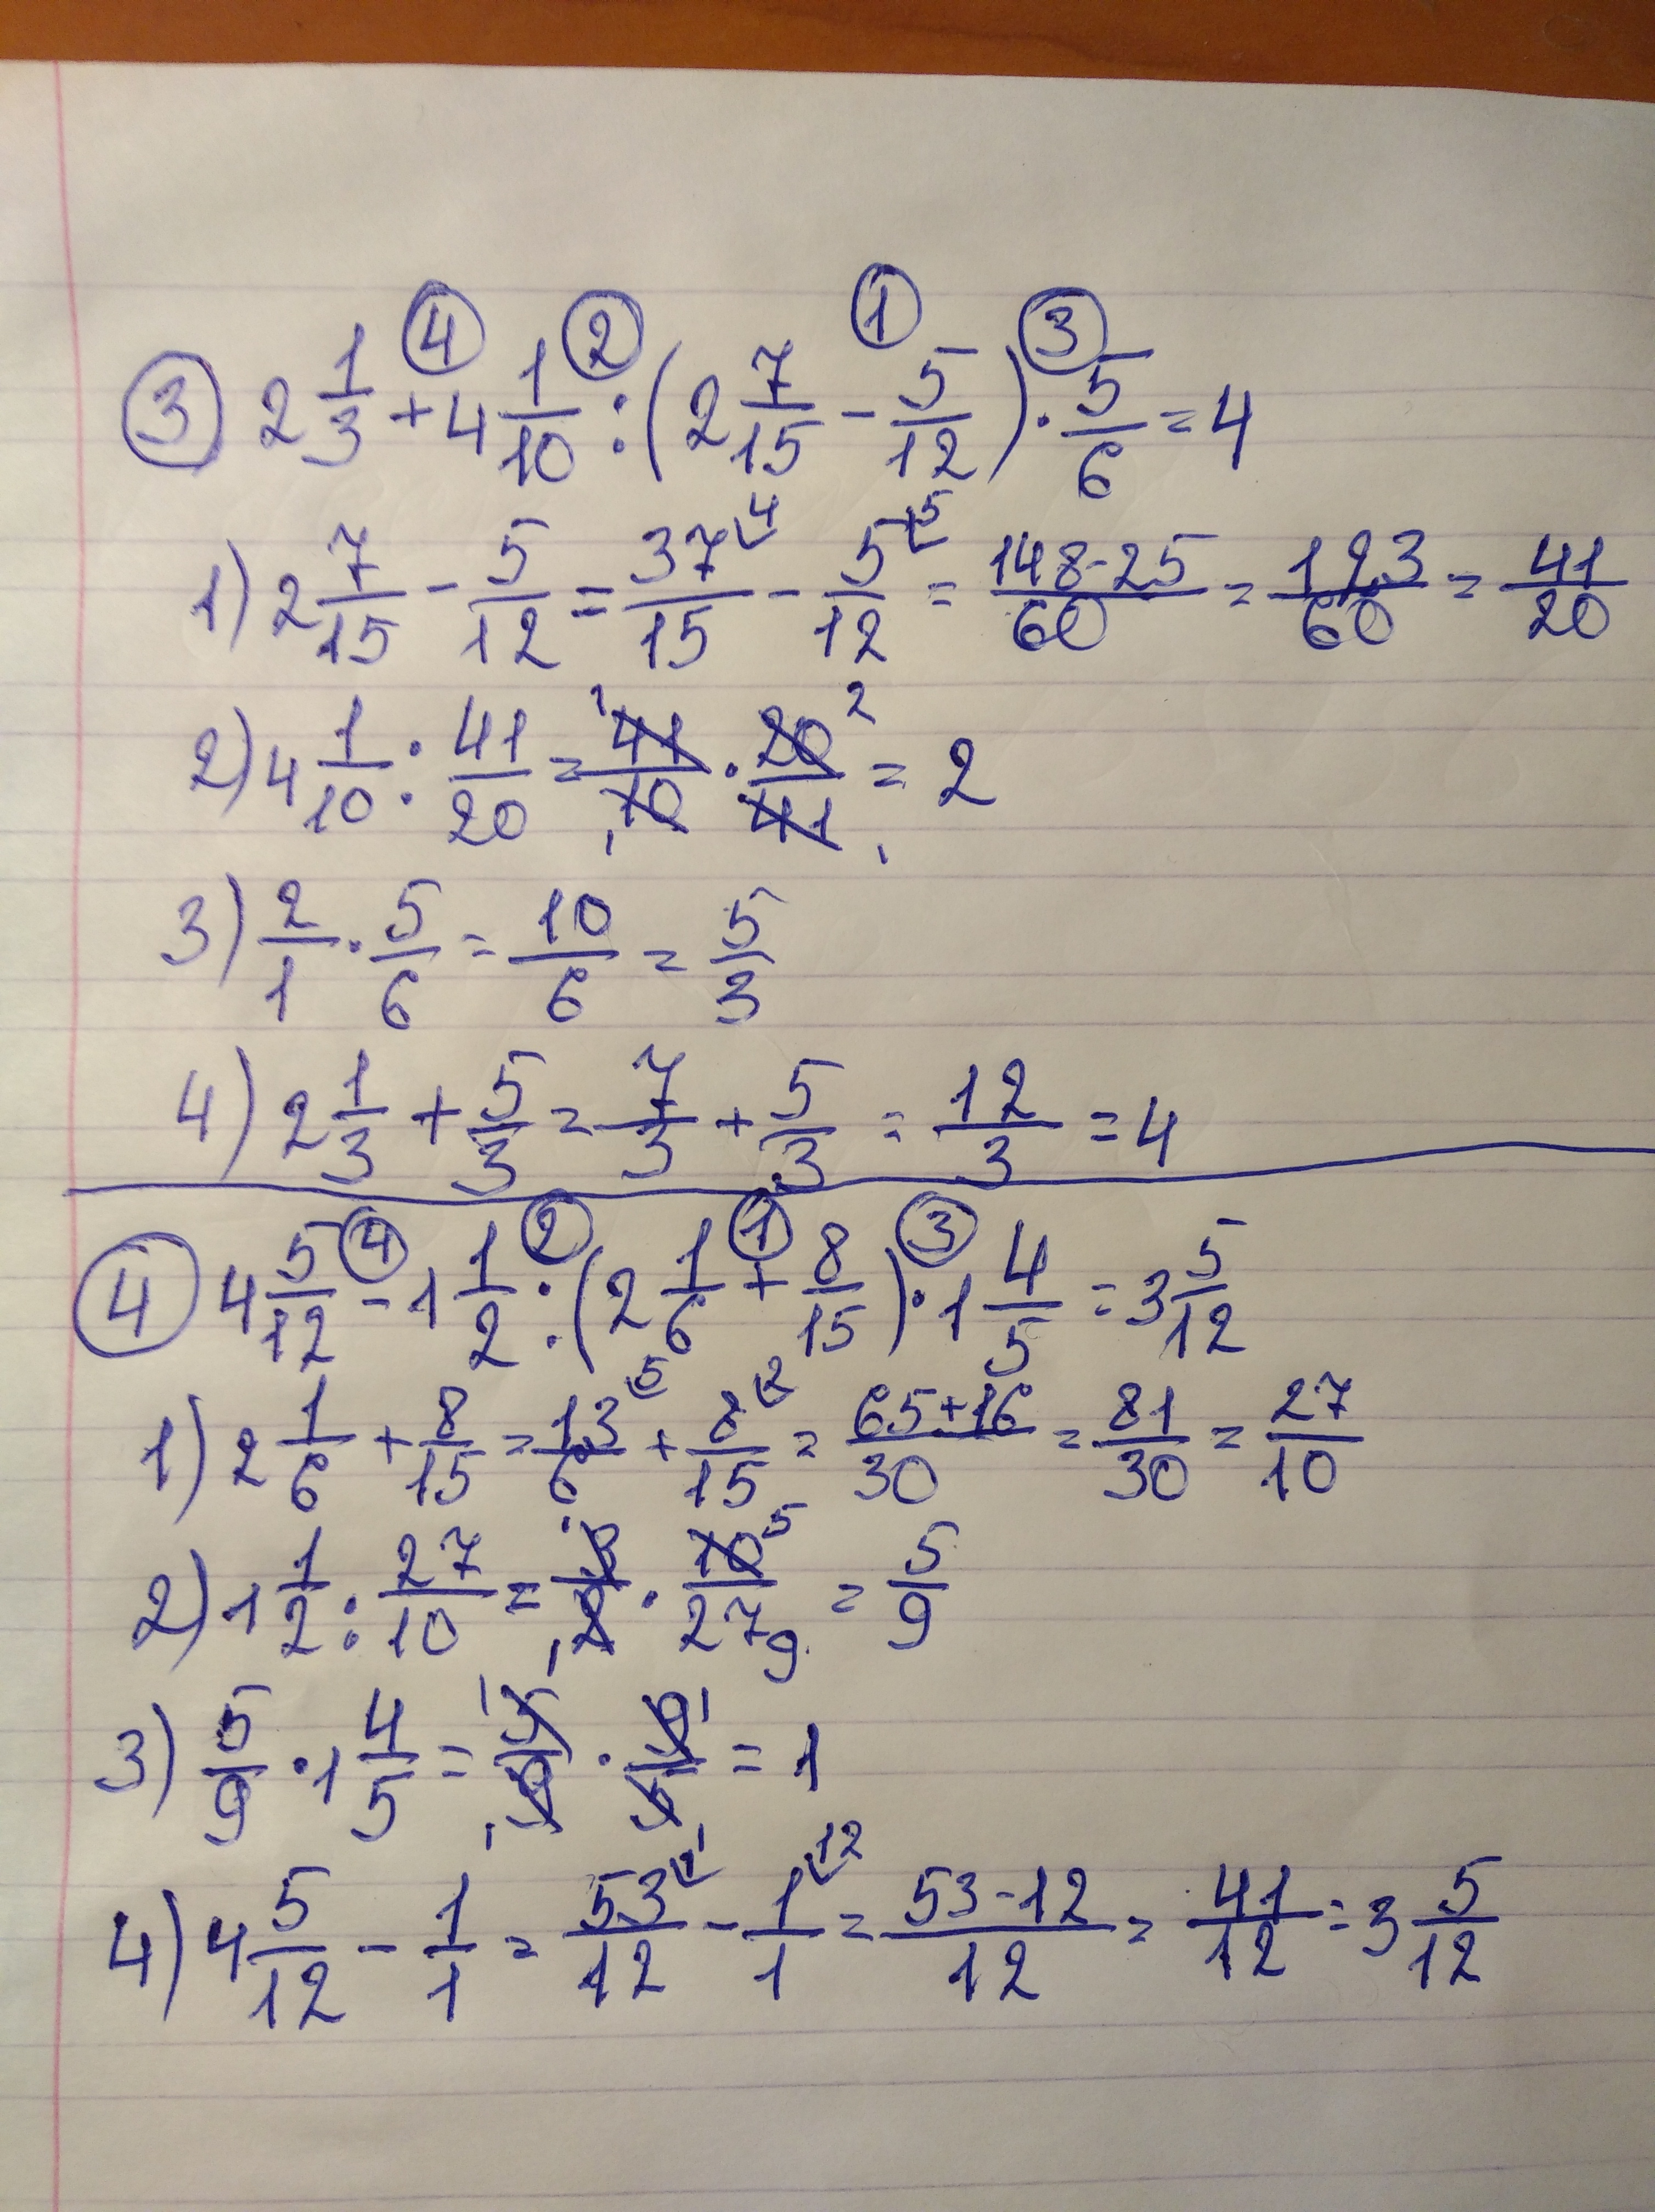 ③ 2 1/3 + 4 1/10 : (2 7/15 - 5/12) · 5/6 = 4
④ ② ① ③
1) 2 7/15 - 5/12 = 37/15 ⁴ - 5/12 ⁵ = 148-25/60 = 123/60 = 41/20
2) 4 1/10 : 41/20 = 41/10 · 20/41 = 2
3) 2/1 · 5/6 = 10/6 = 5/3
4) 2 1/3 + 5/3 = 7/3 + 5/3 = 12/3 = 4
④ 4 5/12 - 1 1/2 : (2 1/6 + 8/15) · 1 4/5 = 3 5/12
④ ② ① ③
1) 2 1/6 + 8/15 = 13/6 ⁵ + 8/15 ² = 65+16/30 = 81/30 = 27/10
2) 1 1/2 : 27/10 = 3/2 · 10/27 = 5/9
3) 5/9 · 1 4/5 = 5/9 · 9/5 = 1
4) 4 5/12 - 1/1 = 53/12 ¹ - 1/1 ¹² = 53-12/12 = 41/12 = 3 5/12